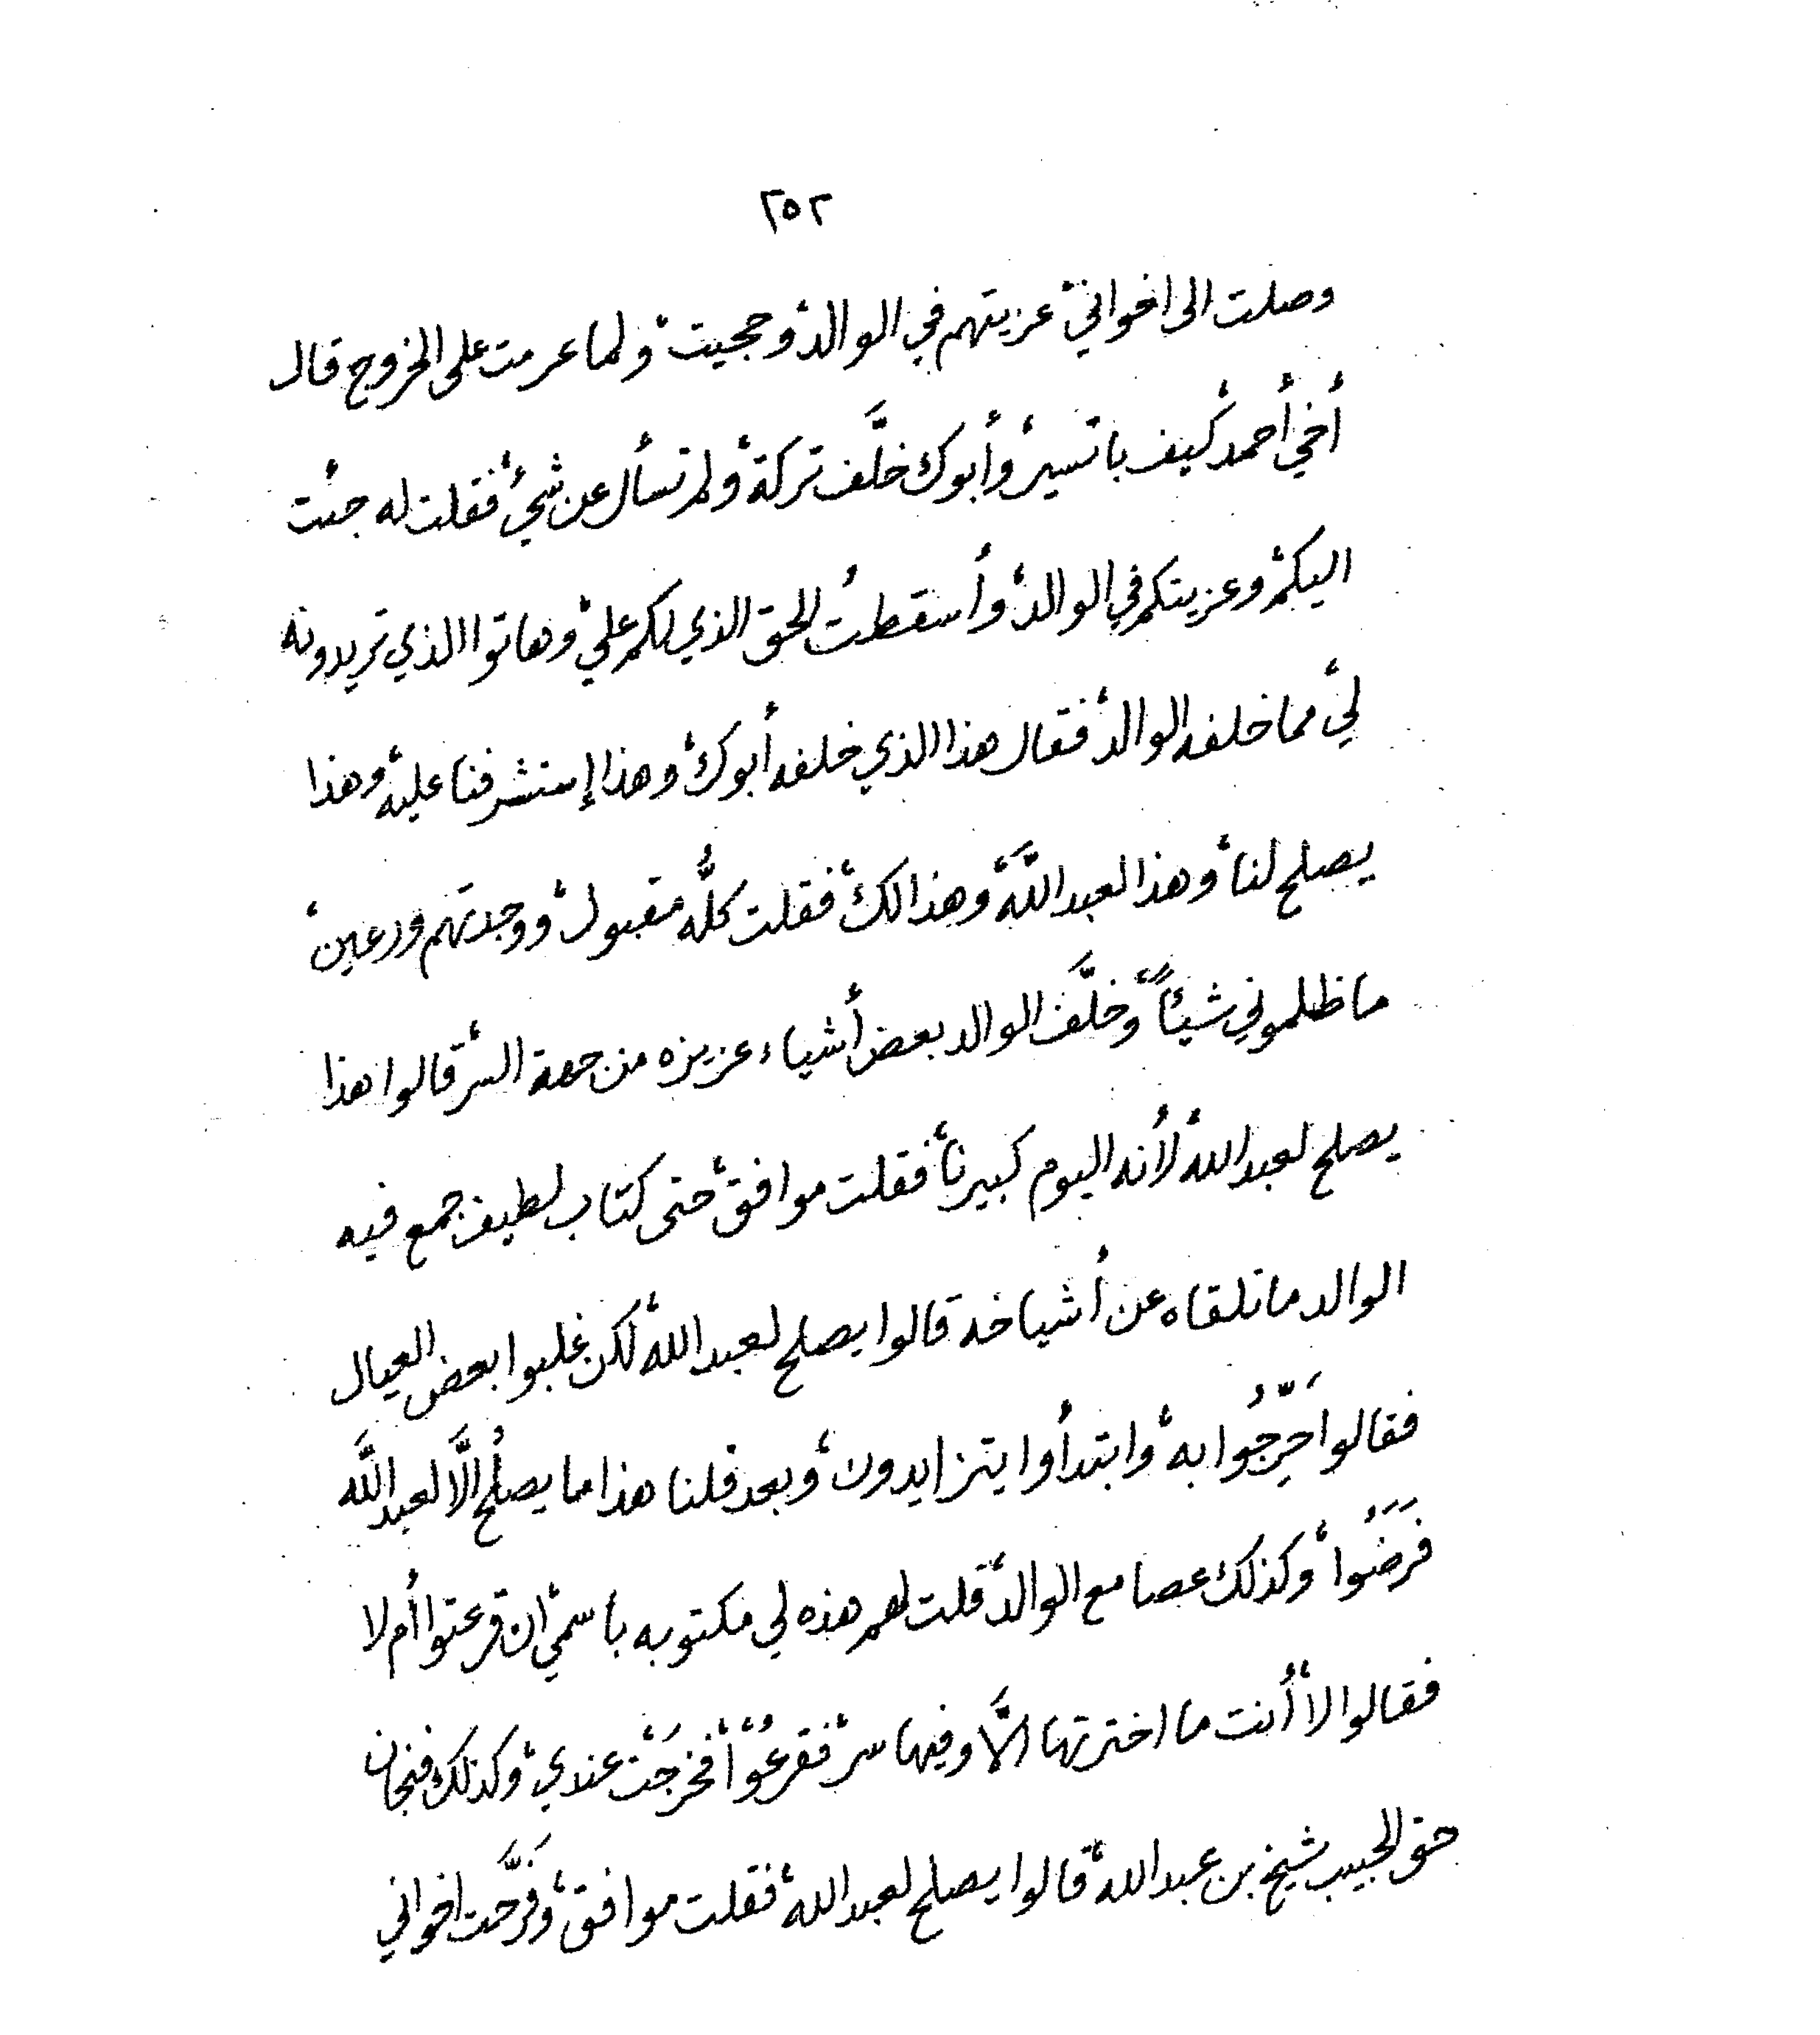 ٢٥٢
وصلت الى اخواني، عزيتهم في الوالد، وحجيت، ولما عرمت على الخروج قال
أخي أحمد، كيف باتسير، وأبوك خلَّف تركة، ولم تسأل عن شيْ، فقلت له جئت
اليكم، وعزيتكم في الوالد، وأسقطتُ الحق الذي لكم علي، وهاتوا الذي تريدونه
لي، مما خلفه الوالد، فقال هذا الذي خلفه أبوك، وهذا إستشرفنا عليه، وهذا
يصلح لنا، وهذا لعبد اللَّه، وهذا لك، فقلت كلُّه مقبول، ووجدتَهم ورعين،
ما ظلموني شيئاً، وخلَّف الوالد بعض أشياء عزيزه من جهة السر، قالوا هذا
يصلح لعبد الله، لأنه اليوم كبيرنا، فقلت موافق، حتى كتاب لطيف جمع فيه
الوالد ما تلقاه عن أشياخه قالوا يصلح لعبد الله، لكن غلبوا بعض العيال
فقالوا حَرِّجُوا به، وابتدأوا يتزايدون، وبعد قلنا هذا ما يصلُح إلَّا لعبد اللَّه
فَرَضَُوا، وكذلك عصا مع الوالد، قلت لهم هذه لي مكتوبه باسمي، ان قرعتوا أم لا
فقالوا لا، أنت ما اخترتها الَّا وفيها سر، فقرعُوْا، فخرجَتْ عندي، وكذلك فنجان
حق الحبيب شيخ بن عبد الله، قالوا يصلح لعبد الله، فقلت موافق، وفَرَّحت اخواني